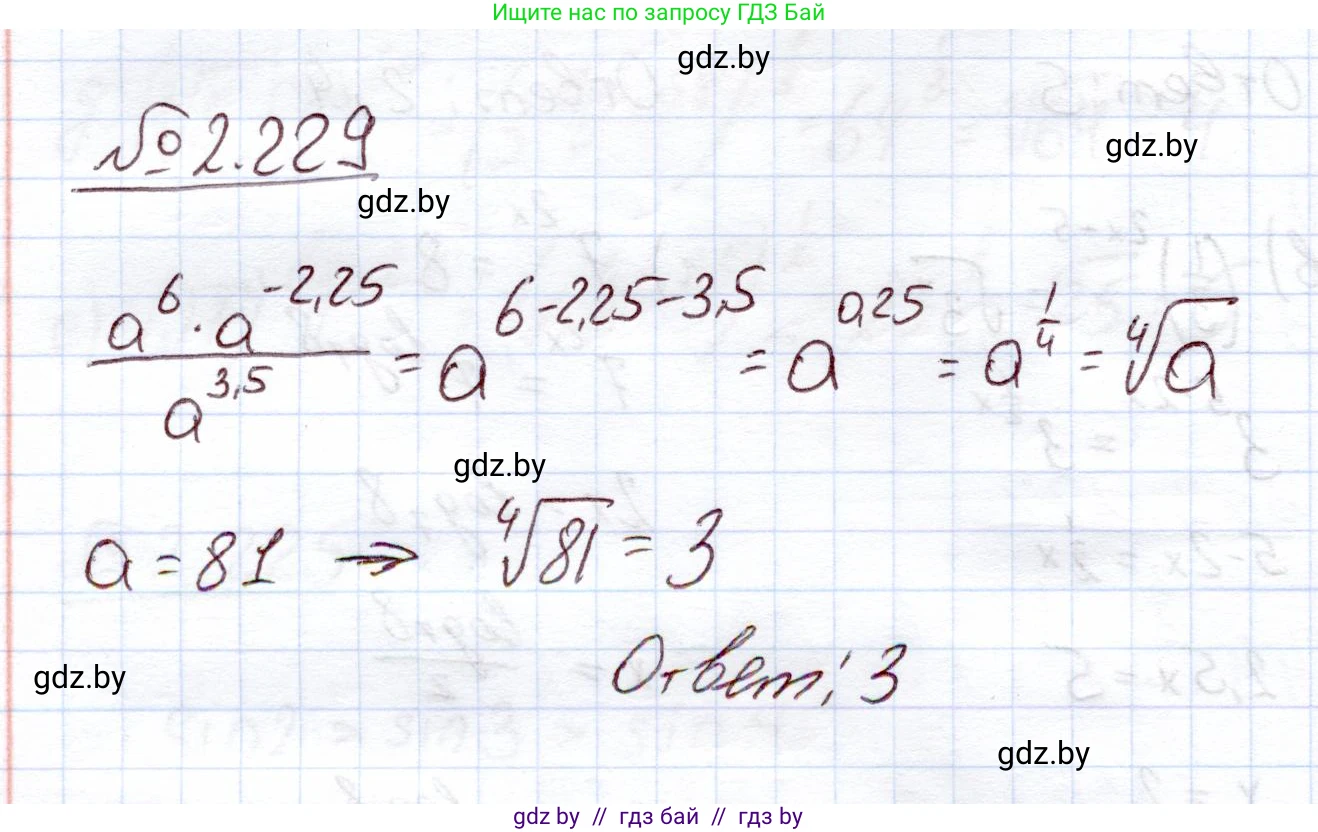 Ищите нас по запросу ГДЗ Бай
gdz.by
№ 2.229
gdz.by
gdz.by
a^6 · a^{-2,25} / a^{3,5} = a^{6-2,25-3,5} = a^{0,25} = a^{1/4} = ⁴√a
gdz.by
a = 81 → ⁴√81 = 3
Ответ: 3
gdz.by
gdz.by
gdz.by // гдз бай // гдз by